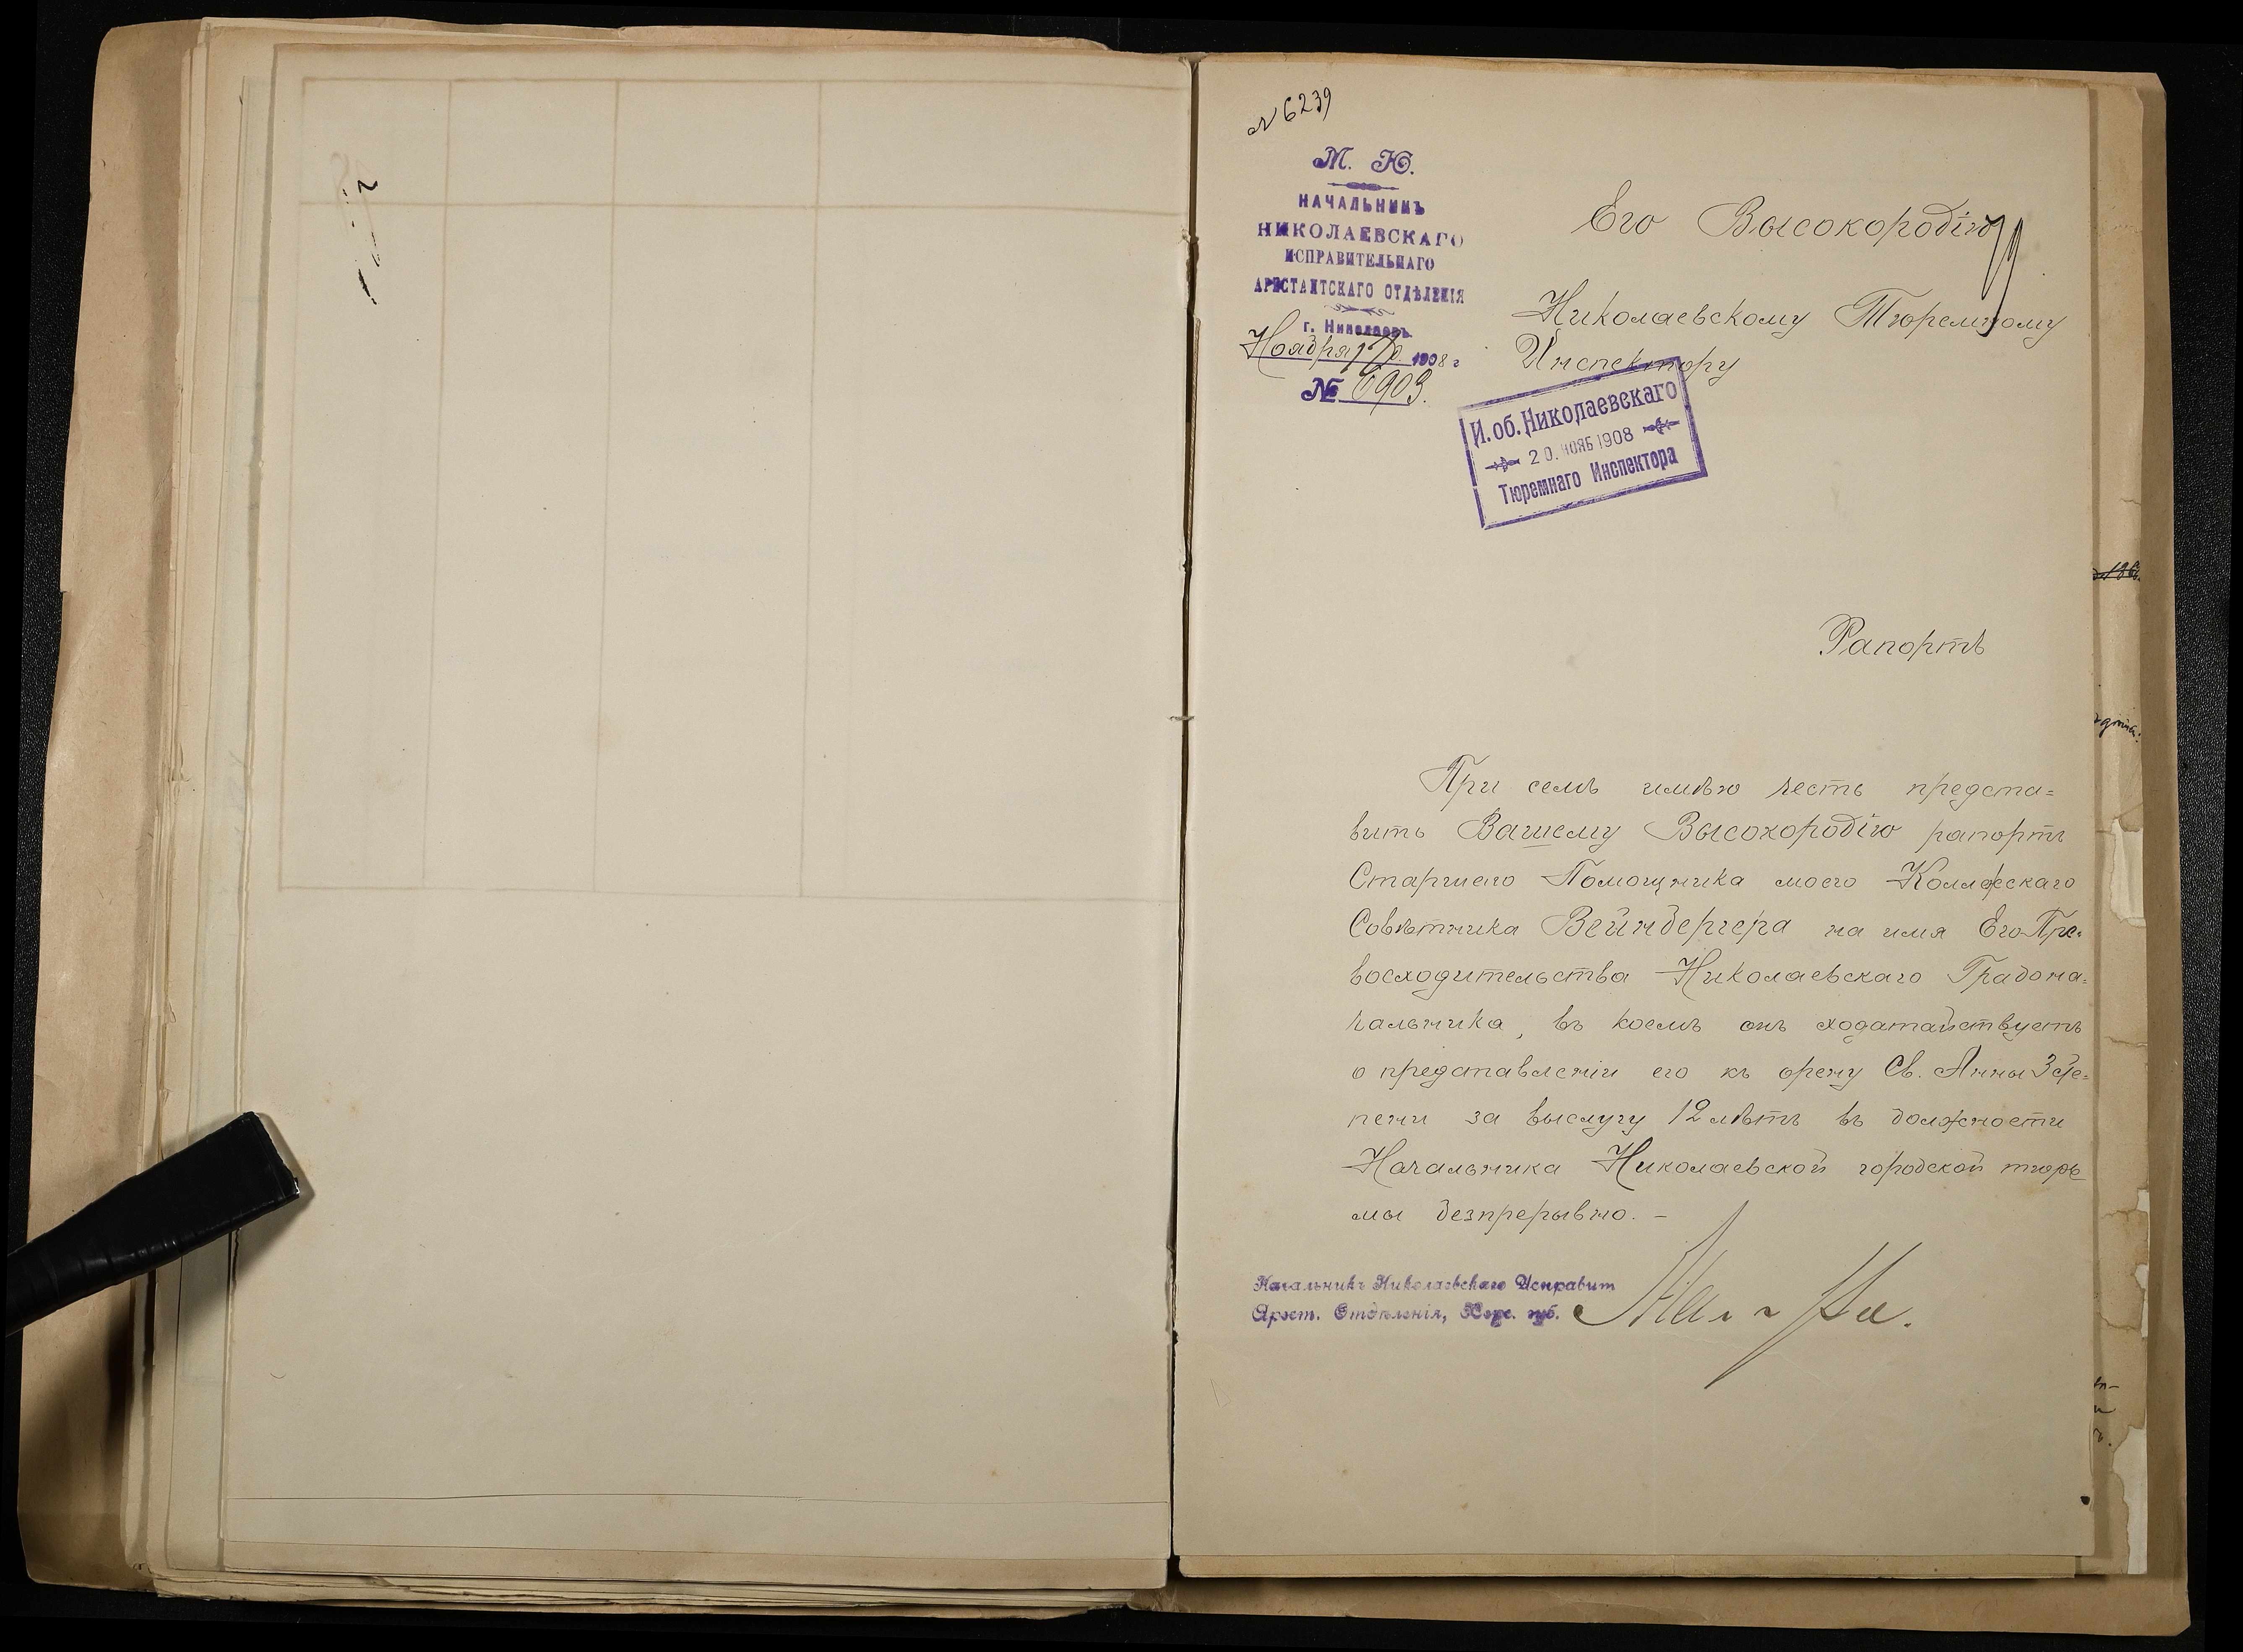 № 6239
М. Ю.
НАЧАЛЬНИКЪ
НИКОЛАЕВСКАГО
ИСПРАВИТЕЛЬНАГО
АРЕСТАНТСКАГО ОТДѢЛЕНІЯ
г. Николаевъ
Ноября 1908 г
№ 6903.
Его Высокородію
Николаевскому Тюремному
Инспектору
И. об. Николаевскаго
20. НОЯБ 1908
Тюремнаго Инспектора
Рапортъ
При семъ имѣю честь предста=
вить Вашему Высокородію рапортъ
Старшего Помощника моего Коллежскаго
Совѣтника Вейнбергера на имя Его Пре=
восходительства Николаевскаго Градона=
чальника, въ коемъ онъ ходатайствуетъ
о представленіи его къ ордену Св. Анны 3 сте=
пени за выслугу 12 лѣтъ въ должности
Начальника Николаевской городской тюрь
мы безпрерывно. –
Начальникъ Николаевскаго Исправит
Арест. Отдѣленія, Херс. губ.